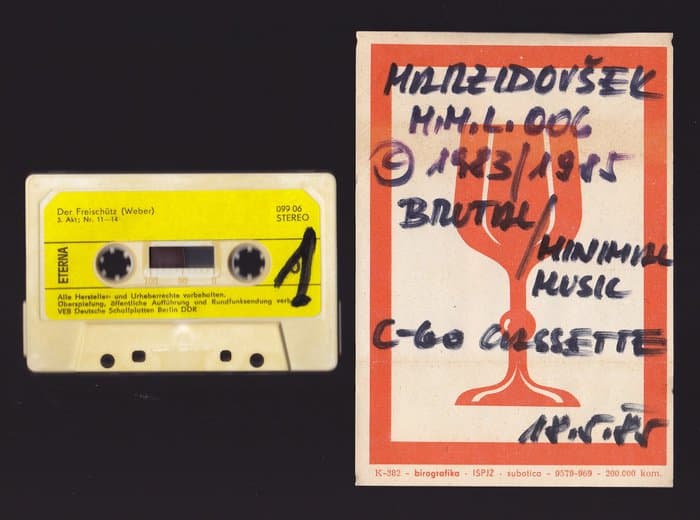 Der Freischütz (Weber)
3. Akt; Nr. 11—14
099 06
STEREO
ETERNA
1
100 50 0
Alle Hersteller- und Urheberrechte vorbehalten.
Überspielung, öffentliche Aufführung und Rundfunksendung verb
VEB Deutsche Schallplatten Berlin DDR
MRRZIDOVŠEK
M.M.L. 006
© 1983/1985
BRUTAL/
MINIMAL
MUSIC
C-60 CASSETTE
18.5.85
K-382 - birografika - ISPJZ - subotica - 0579-969 - 200.000 kom.